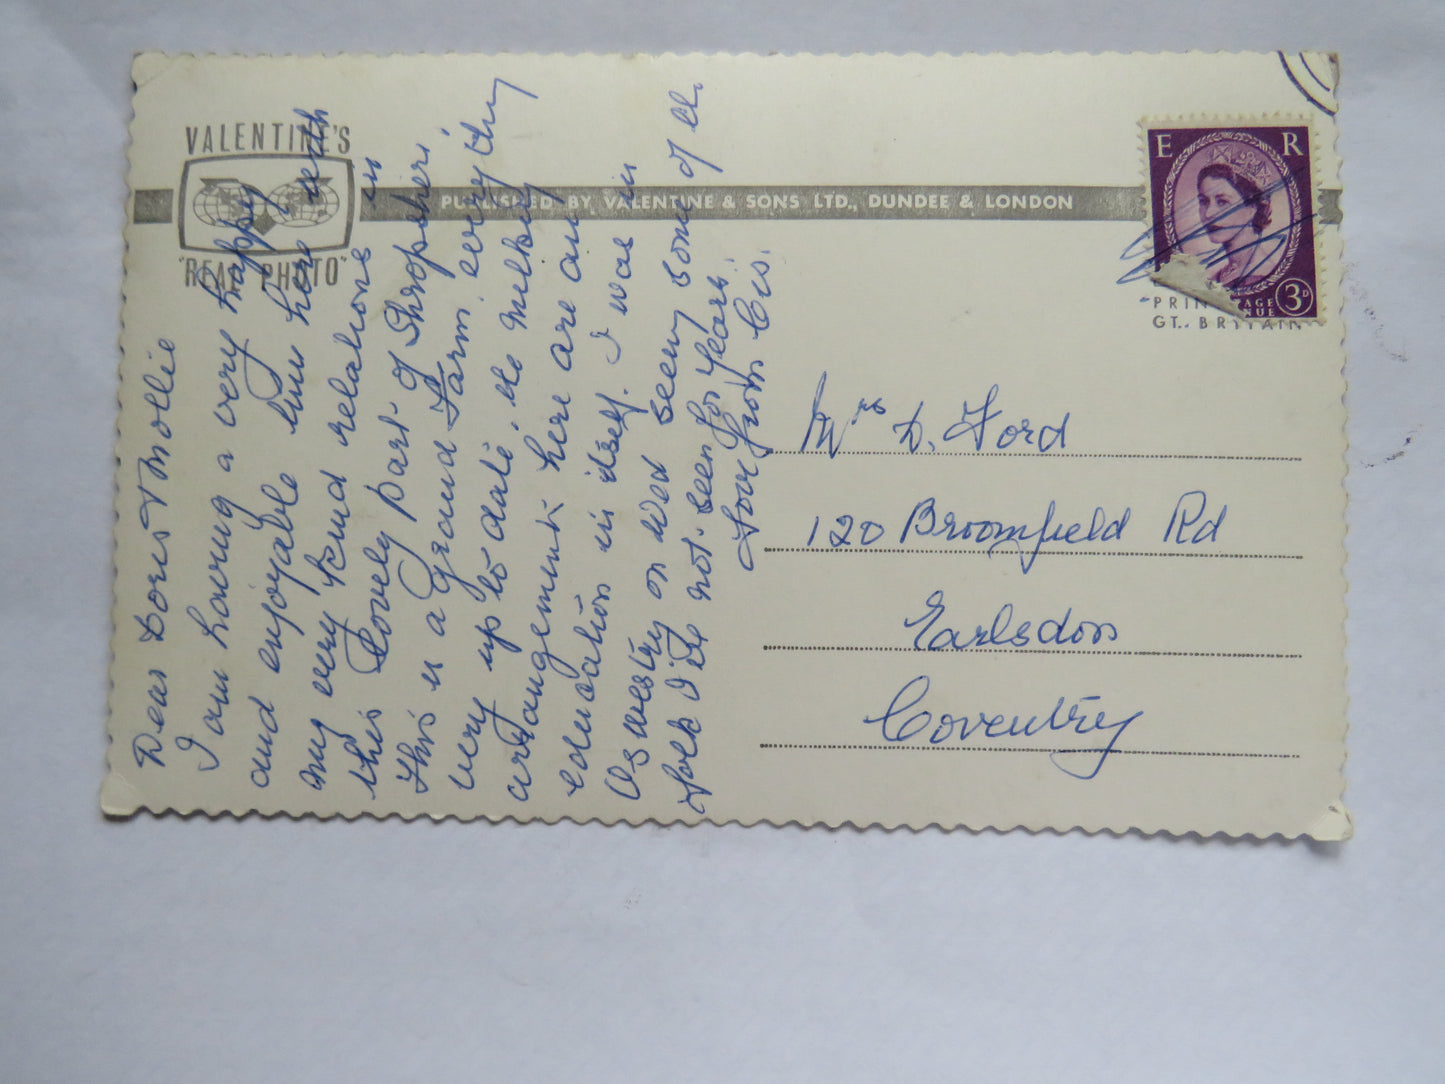 VALENTINE'S
"REAL PHOTO"
PUBLISHED BY VALENTINE & SONS LTD., DUNDEE & LONDON
E R
3D
PRIN AGE
NUE
GT. BRITAIN
Dear Doris & Mollie
I am having a very happy
and enjoyable time here with
my very kind relations in
this lovely part of Shropsheri
this is a Grand Farm every thing
very up to date. the milking
arrangements here are an
education in itself. I was in
Oswestry on Wed seeing some of the
folk I've not seen for years.
Love from Cis.
Mrs D. Ford
120 Broomfield Rd
Earlsdon
Coventry